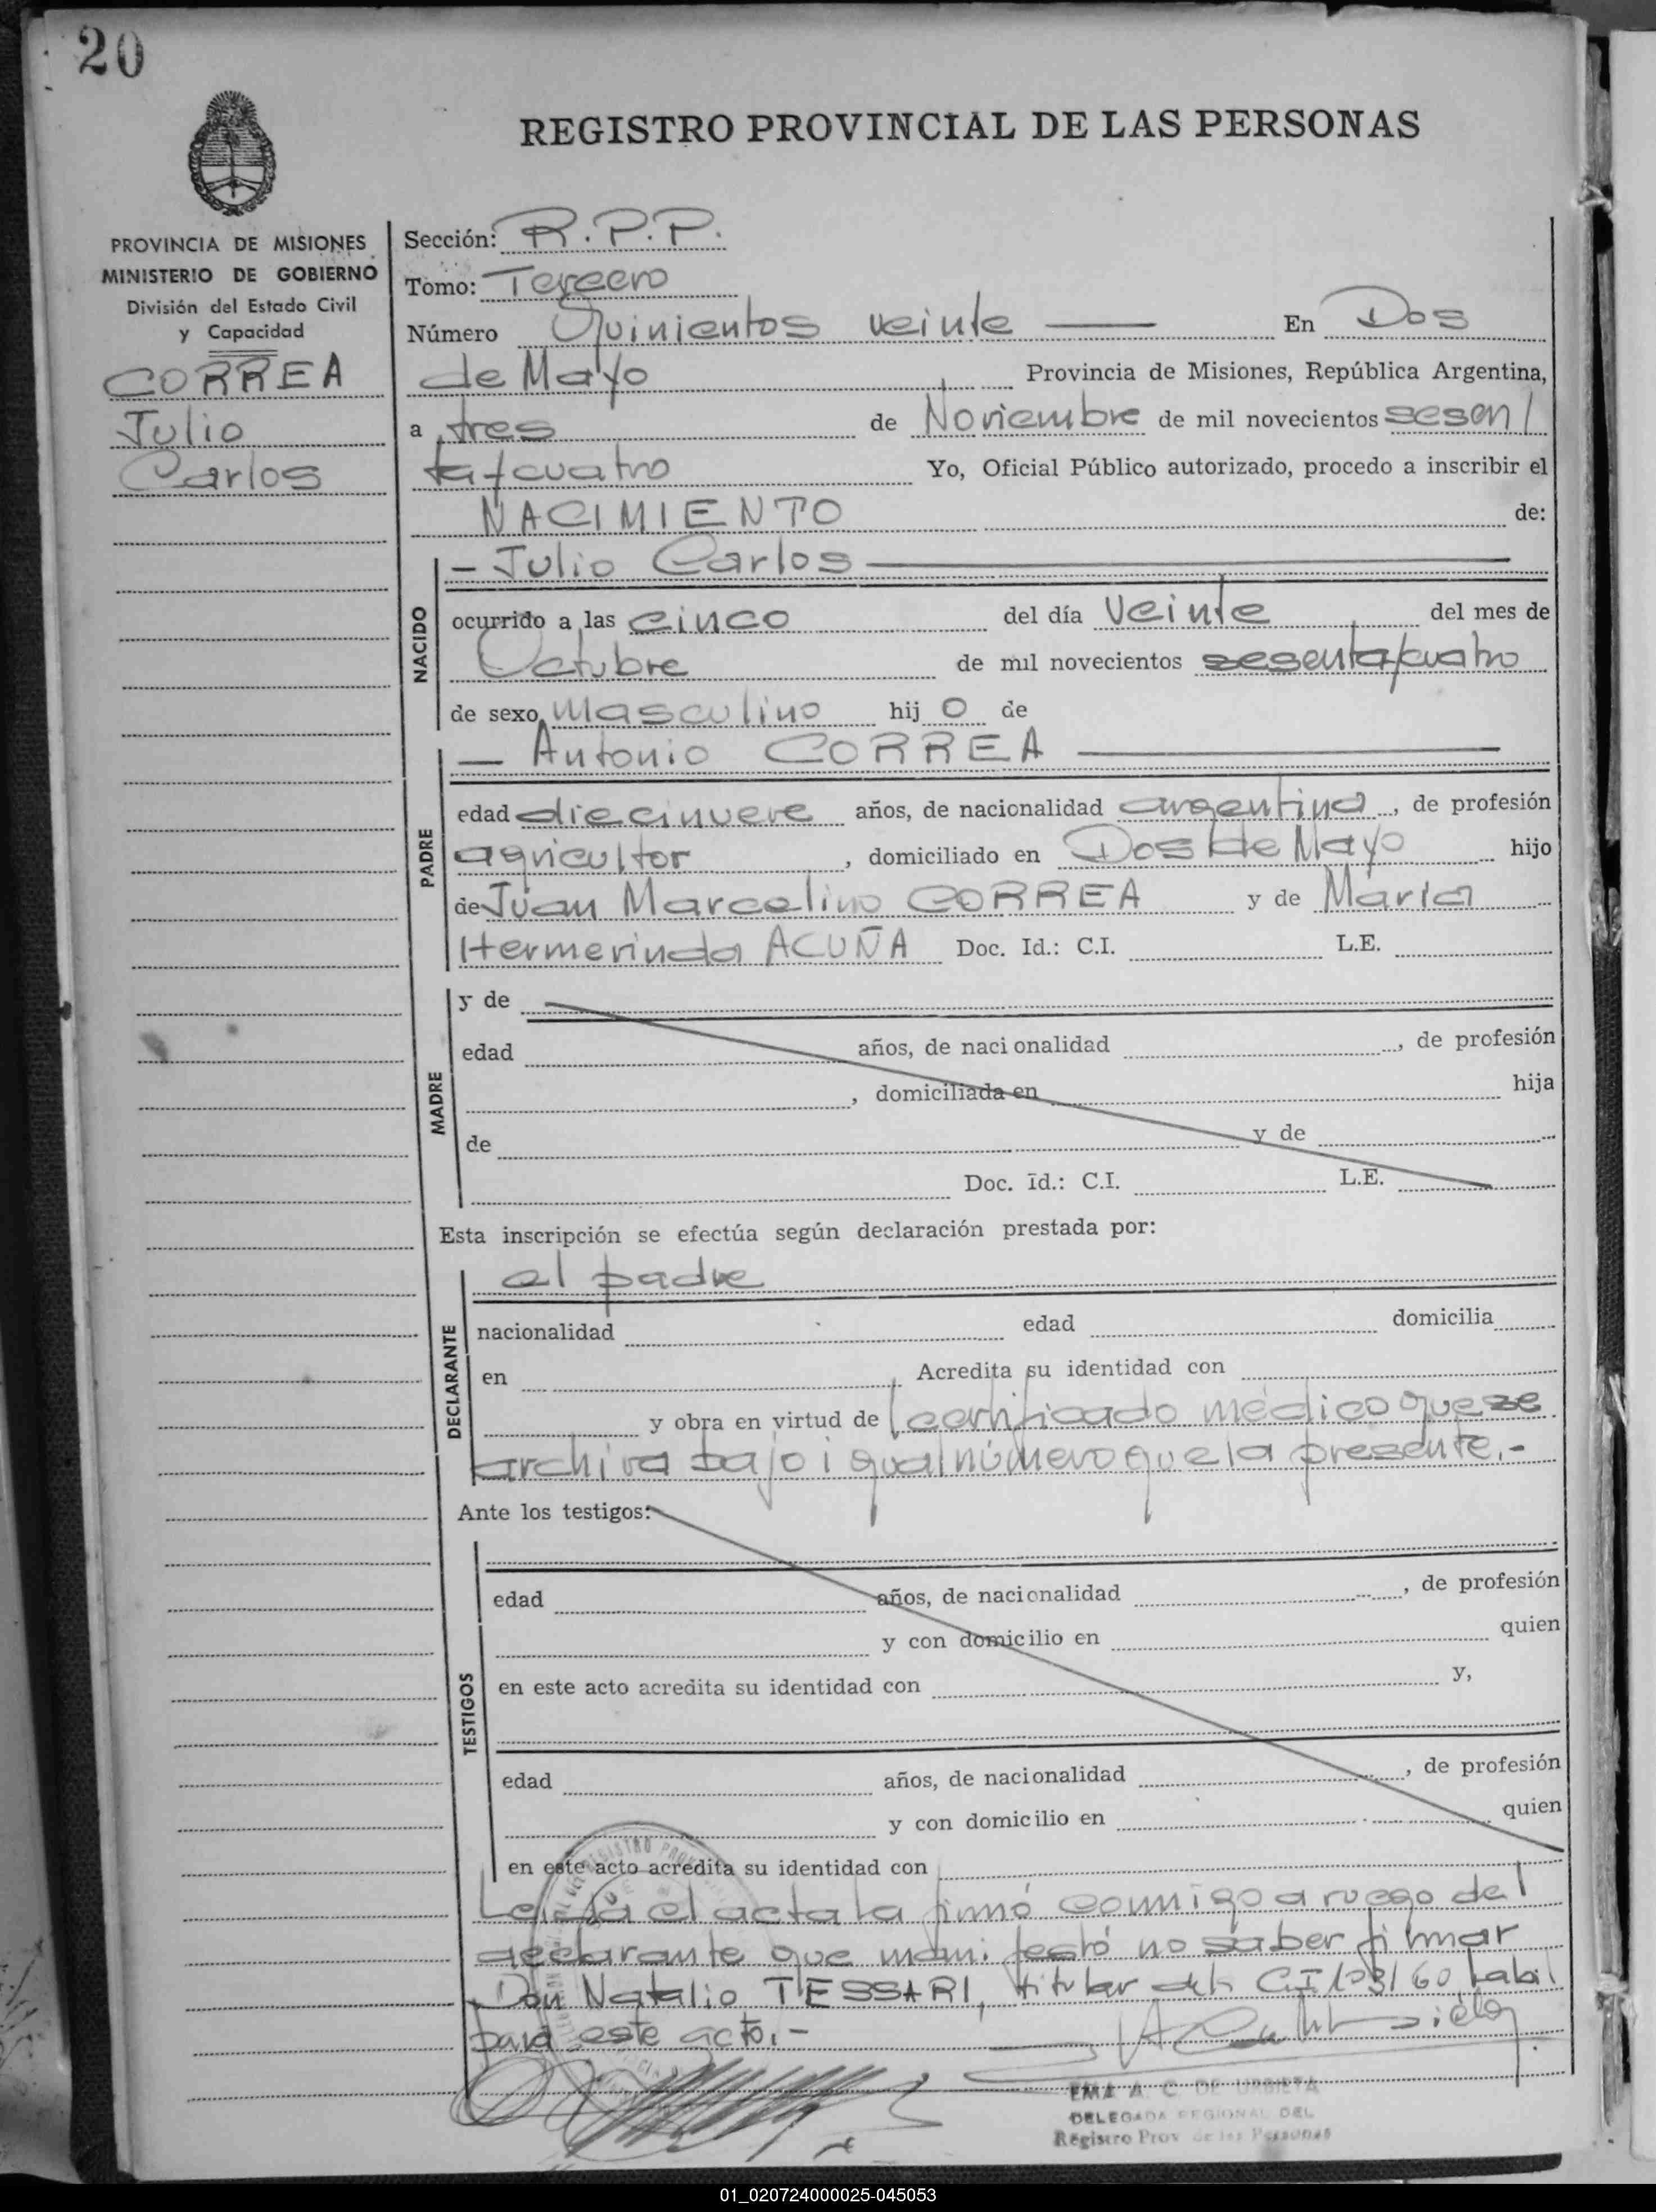 20
REGISTRO PROVINCIAL DE LAS PERSONAS
PROVINCIA DE MISIONES
MINISTERIO DE GOBIERNO
División del Estado Civil
y Capacidad
CORREA
Julio
Carlos
Sección: R.P.P.
Tomo: Tercero
Número Quinientos veinte — En Dos
de Mayo Provincia de Misiones, República Argentina,
a tres de Noviembre de mil novecientos sesen/
ta/cuatro Yo, Oficial Público autorizado, procedo a inscribir el
NACIMIENTO de:
NACIDO
- Julio Carlos —
ocurrido a las cinco del día veinte del mes de
Octubre de mil novecientos sesenta/cuatro
de sexo masculino hij o de
PADRE
— Antonio CORREA —
edad diecinueve años, de nacionalidad argentina, de profesión
agricultor, domiciliado en Dos de Mayo hijo
de Juan Marcelino CORREA y de María
Hermerinda ACUÑA Doc. Id.: C.I. L.E.
MADRE
y de
edad años, de nacionalidad , de profesión
, domiciliada en hija
de y de
Doc. Id.: C.I. L.E.
Esta inscripción se efectúa según declaración prestada por:
DECLARANTE
el padre
nacionalidad edad domicilia
en Acredita su identidad con
y obra en virtud de certificado médico que se
archiva bajo igual número que la presente.-
Ante los testigos:
TESTIGOS
edad años, de nacionalidad , de profesión
y con domicilio en quien
en este acto acredita su identidad con y,
edad años, de nacionalidad , de profesión
y con domicilio en quien
en este acto acredita su identidad con
Leída el acta la firmó conmigo a ruego del
declarante que manifestó no saber firmar
Don Natalio TESSARI, titular de la CI 103160 habil
para este acto.-
EMA A. C. DE URBIETA
DELEGADA REGIONAL DEL
Registro Prov de las Personas
01_020724000025-045053